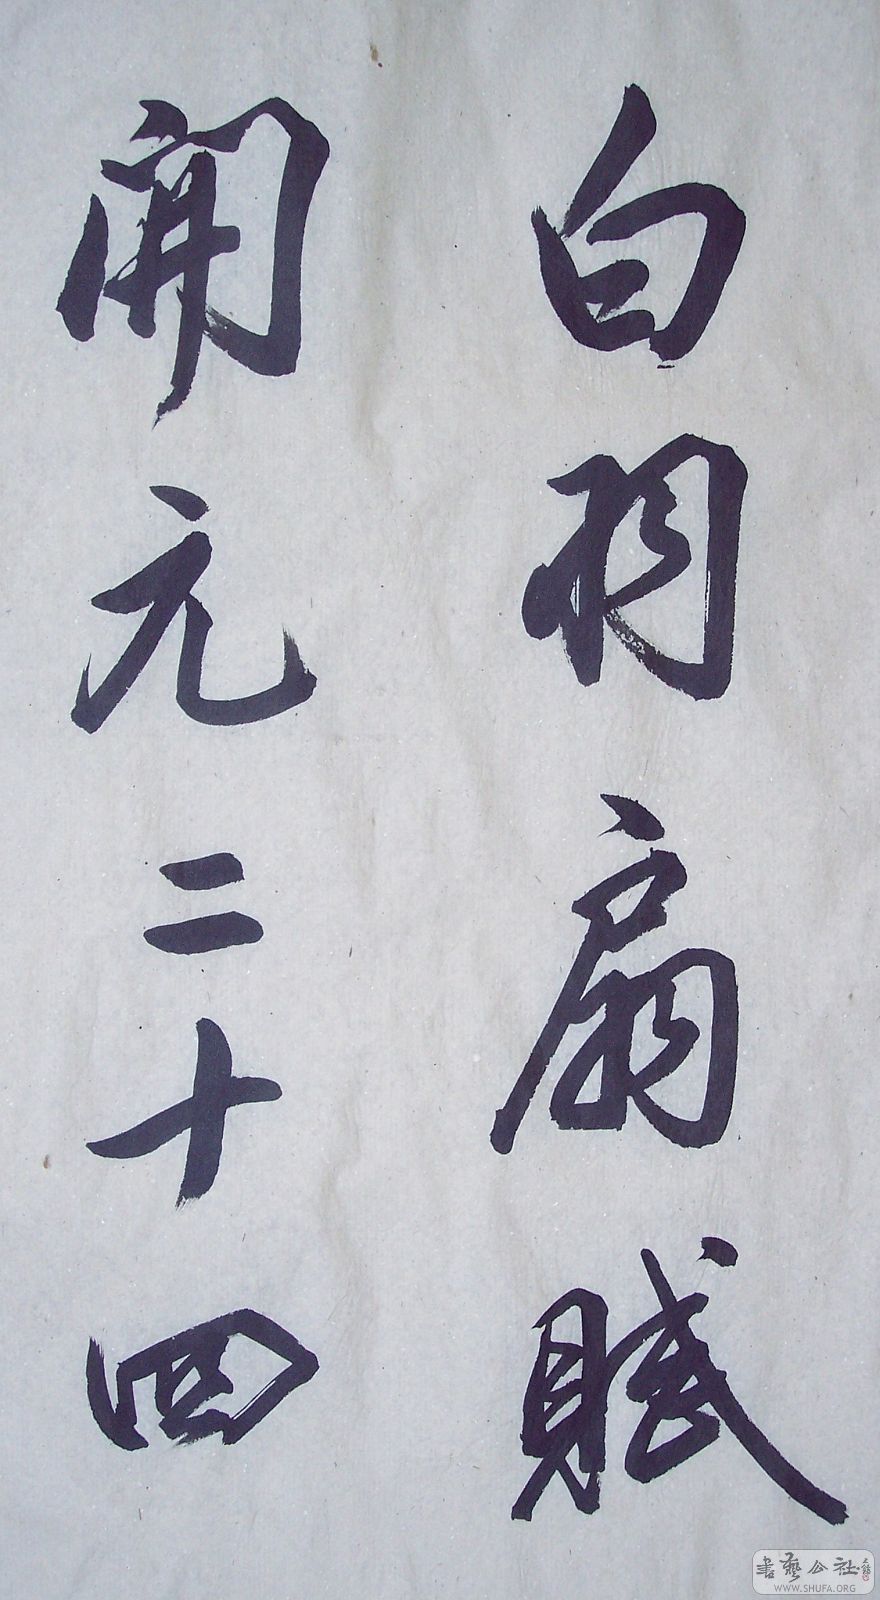 白羽扇賦
開元二十四
書藝公社
WWW.SHUFA.ORG